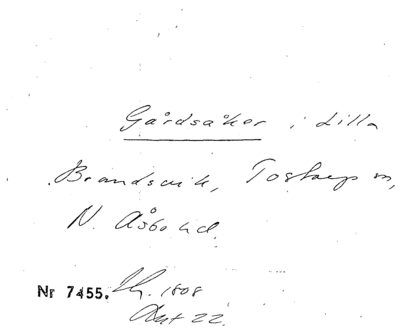 Gårdsåker i Lilla
Brandsvik, Tostarps sn,
N. Åsbo hd.
Nr 7455. 1808
22.